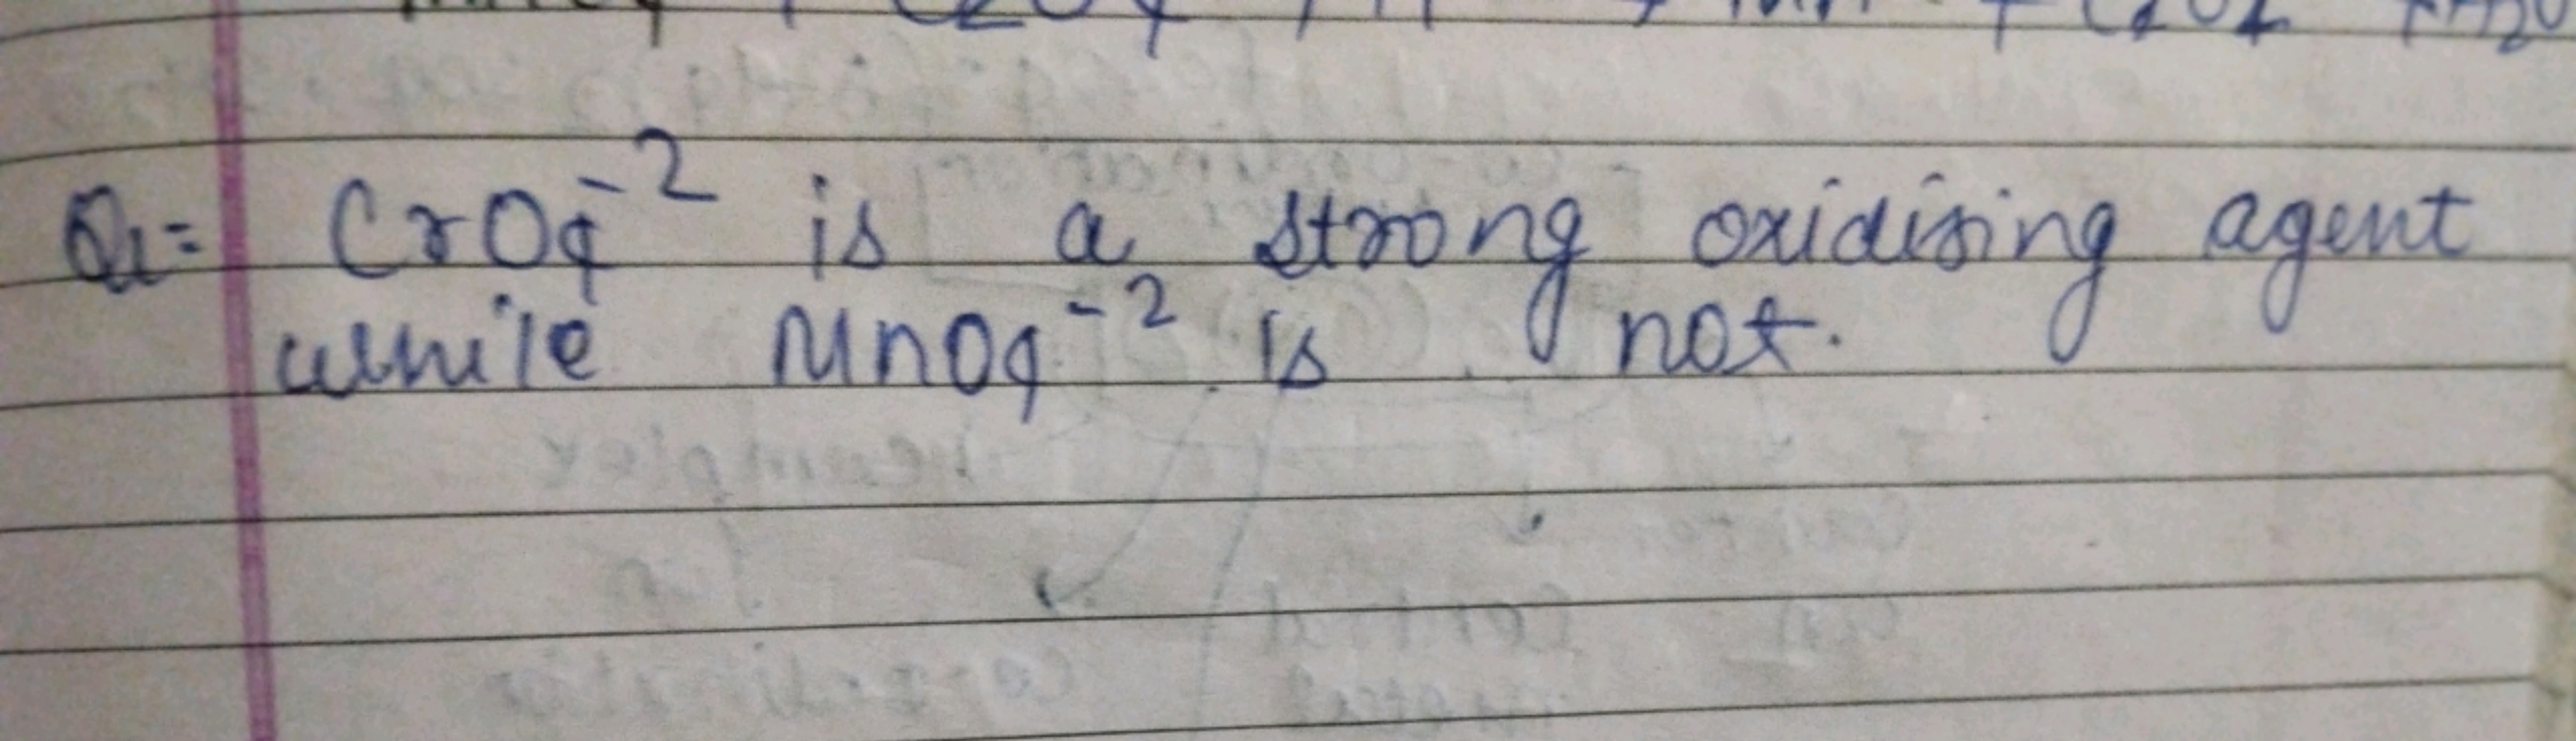 Q1= CrO4^-2 is a strong oxidising agent
while MnO4^-2 is not.